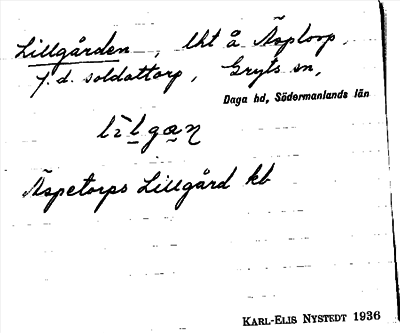 Lillgården, lht å Äsptorp,
f.d. soldattorp, Gryts sn,
Daga hd, Södermanlands län
Äspetorps Lillgård kb
KARL-ELIS NYSTEDT 1936